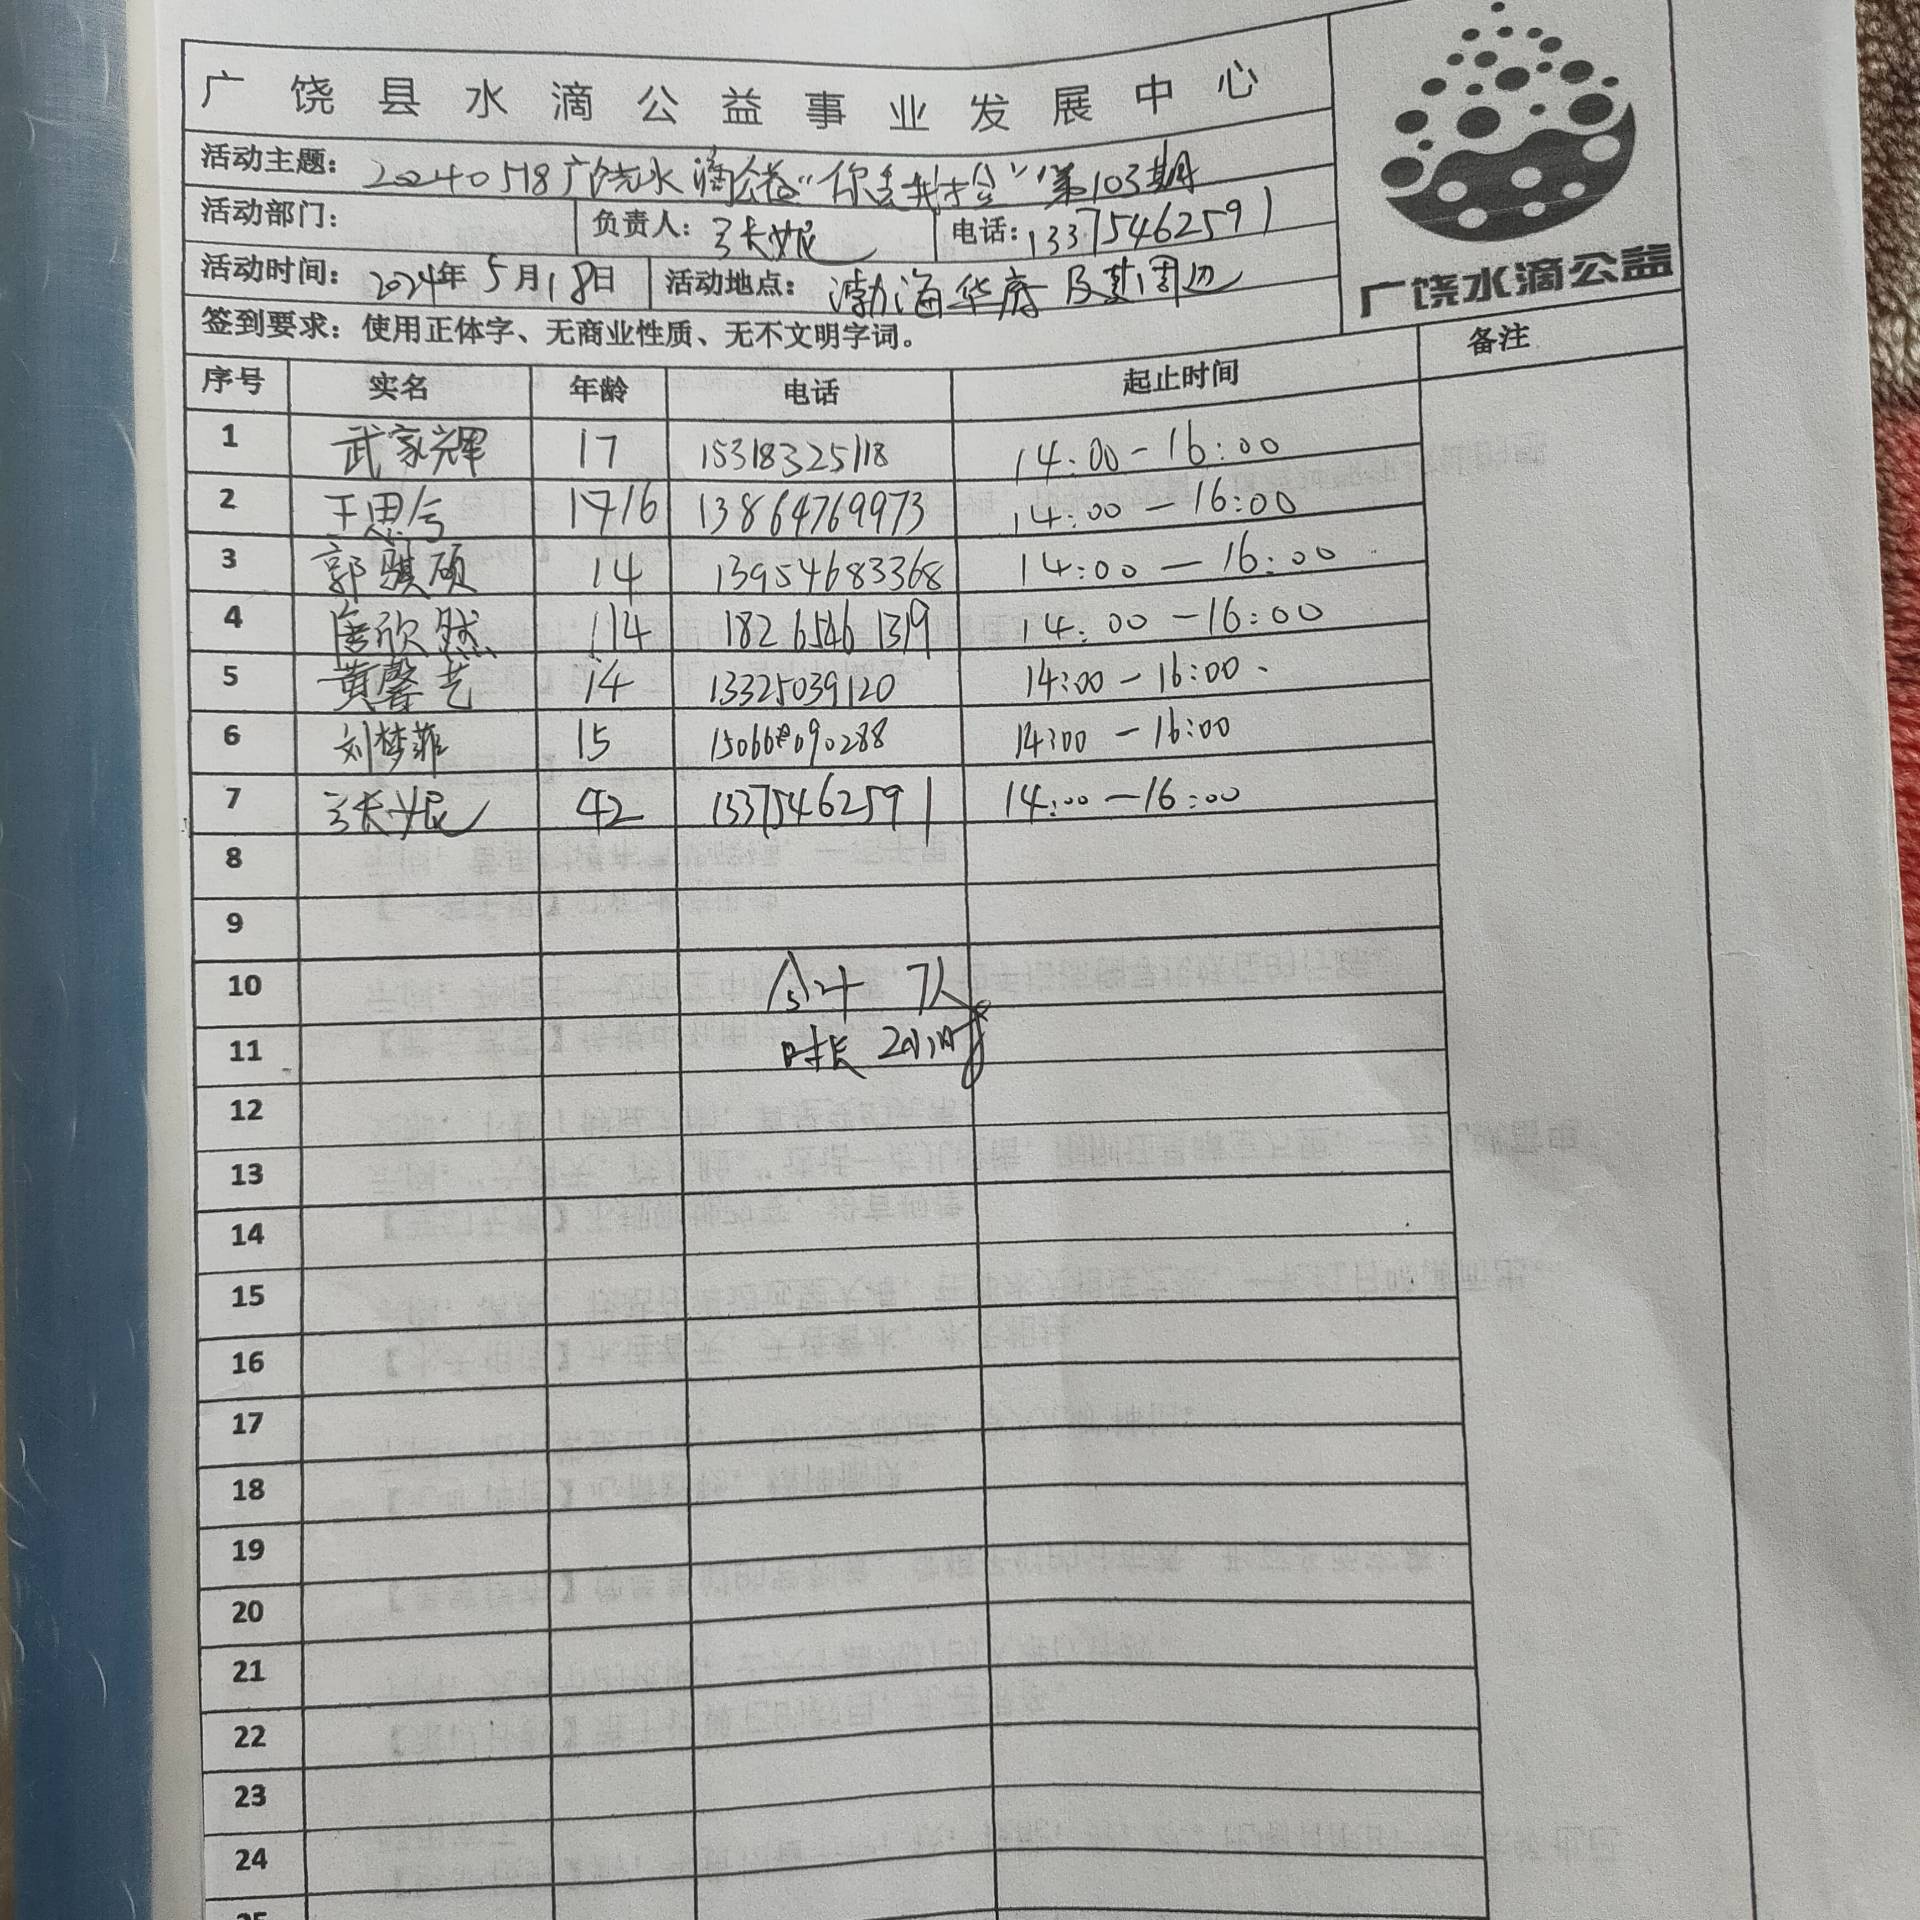 广饶县水滴公益事业发展中心
活动主题：20240518广饶水滴公益“你丢我捡”第103期
活动部门： 负责人：张妮 电话：13375462591
活动时间：2024年5月18日 活动地点：渤海华府及其周边
广饶水滴公益
签到要求：使用正体字、无商业性质、无不文明字词。
序号 实名 年龄 电话 起止时间 备注
1 武家辉 17 15318325118 14:00-16:00
2 王思兮 16 13864769973 14:00-16:00
3 郭骐硕 14 13954683368 14:00-16:00
4 唐欣然 14 18265461319 14:00-16:00
5 黄馨艺 14 13325039120 14:00-16:00
6 刘梦菲 15 15066090288 14:00-16:00
7 张妮 42 13375462591 14:00-16:00
8
9
10 合计 7人
11 时长 2小时
12
13
14
15
16
17
18
19
20
21
22
23
24
25